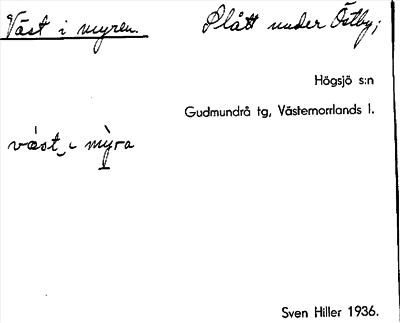 Väst i myren. Slått under Östby;
Högsjö s:n
Gudmundrå tg, Västernorrlands l.
væ̀st‿i mỳra
Sven Hiller 1936.